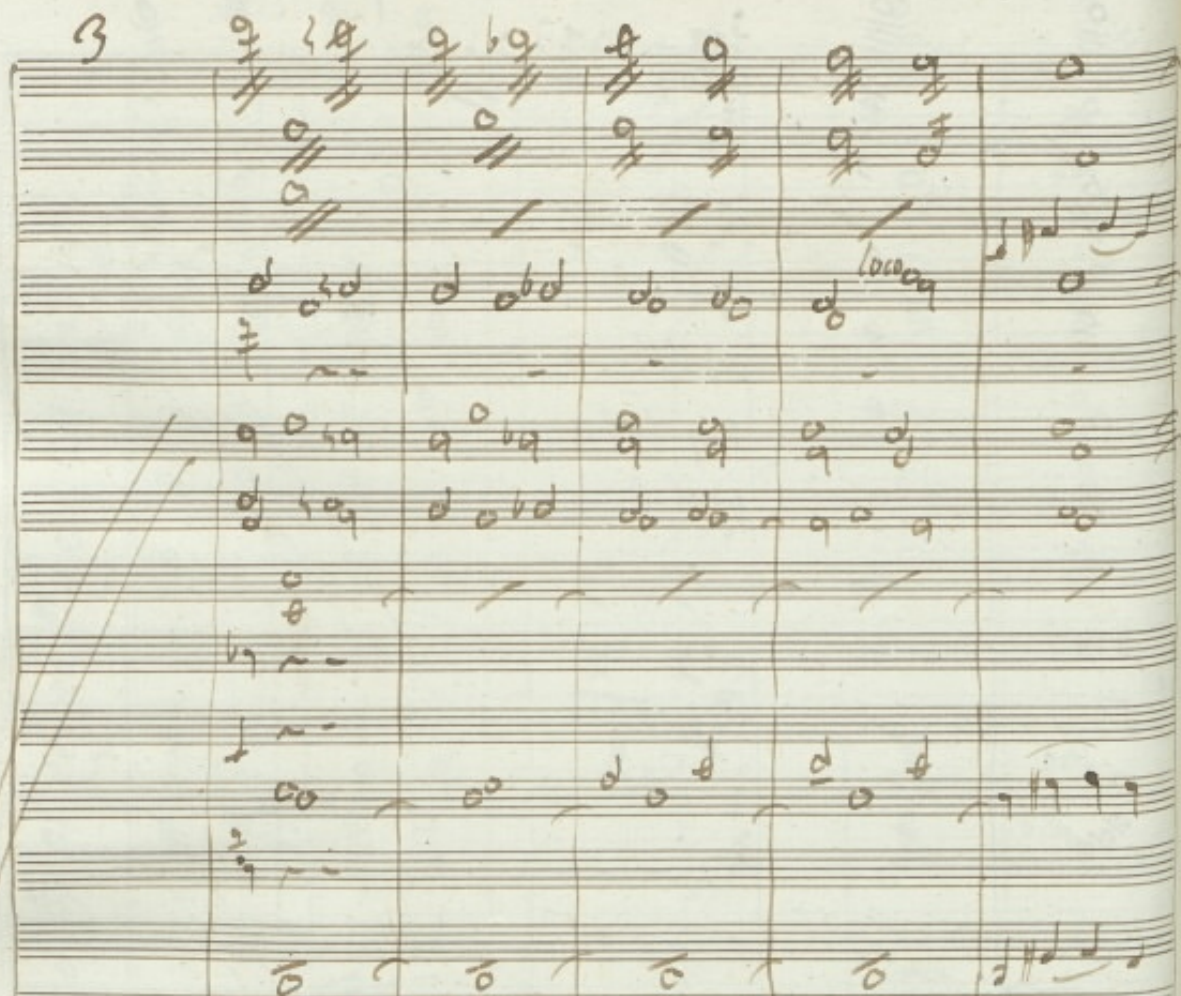 3
loco